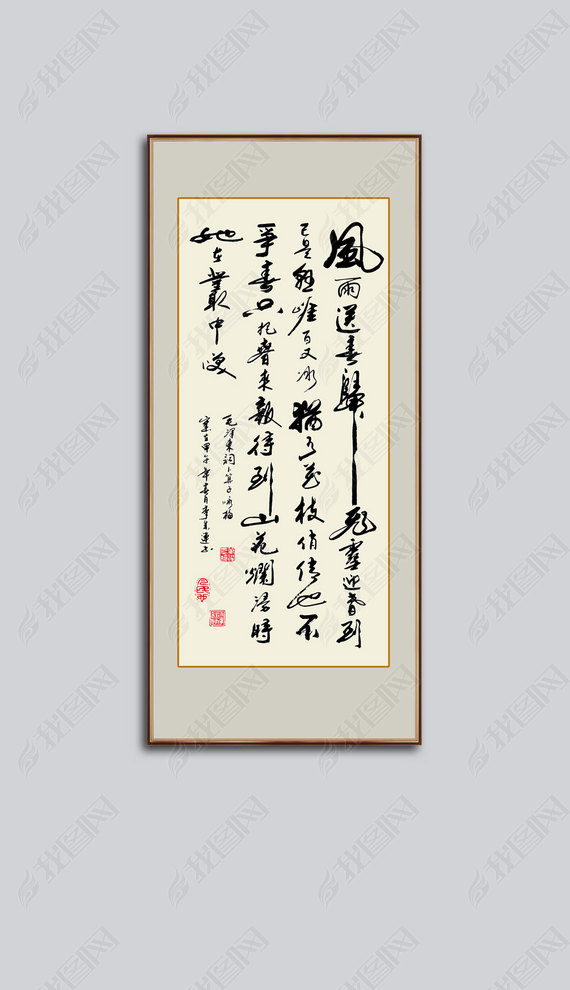 風雨送春歸飛雪迎春到
已是懸崖百丈冰猶有花枝俏俏也不
爭春只把春來報待到山花爛漫時
她在叢中笑
毛澤東詞卜算子咏梅
甲午年春月李
我图网